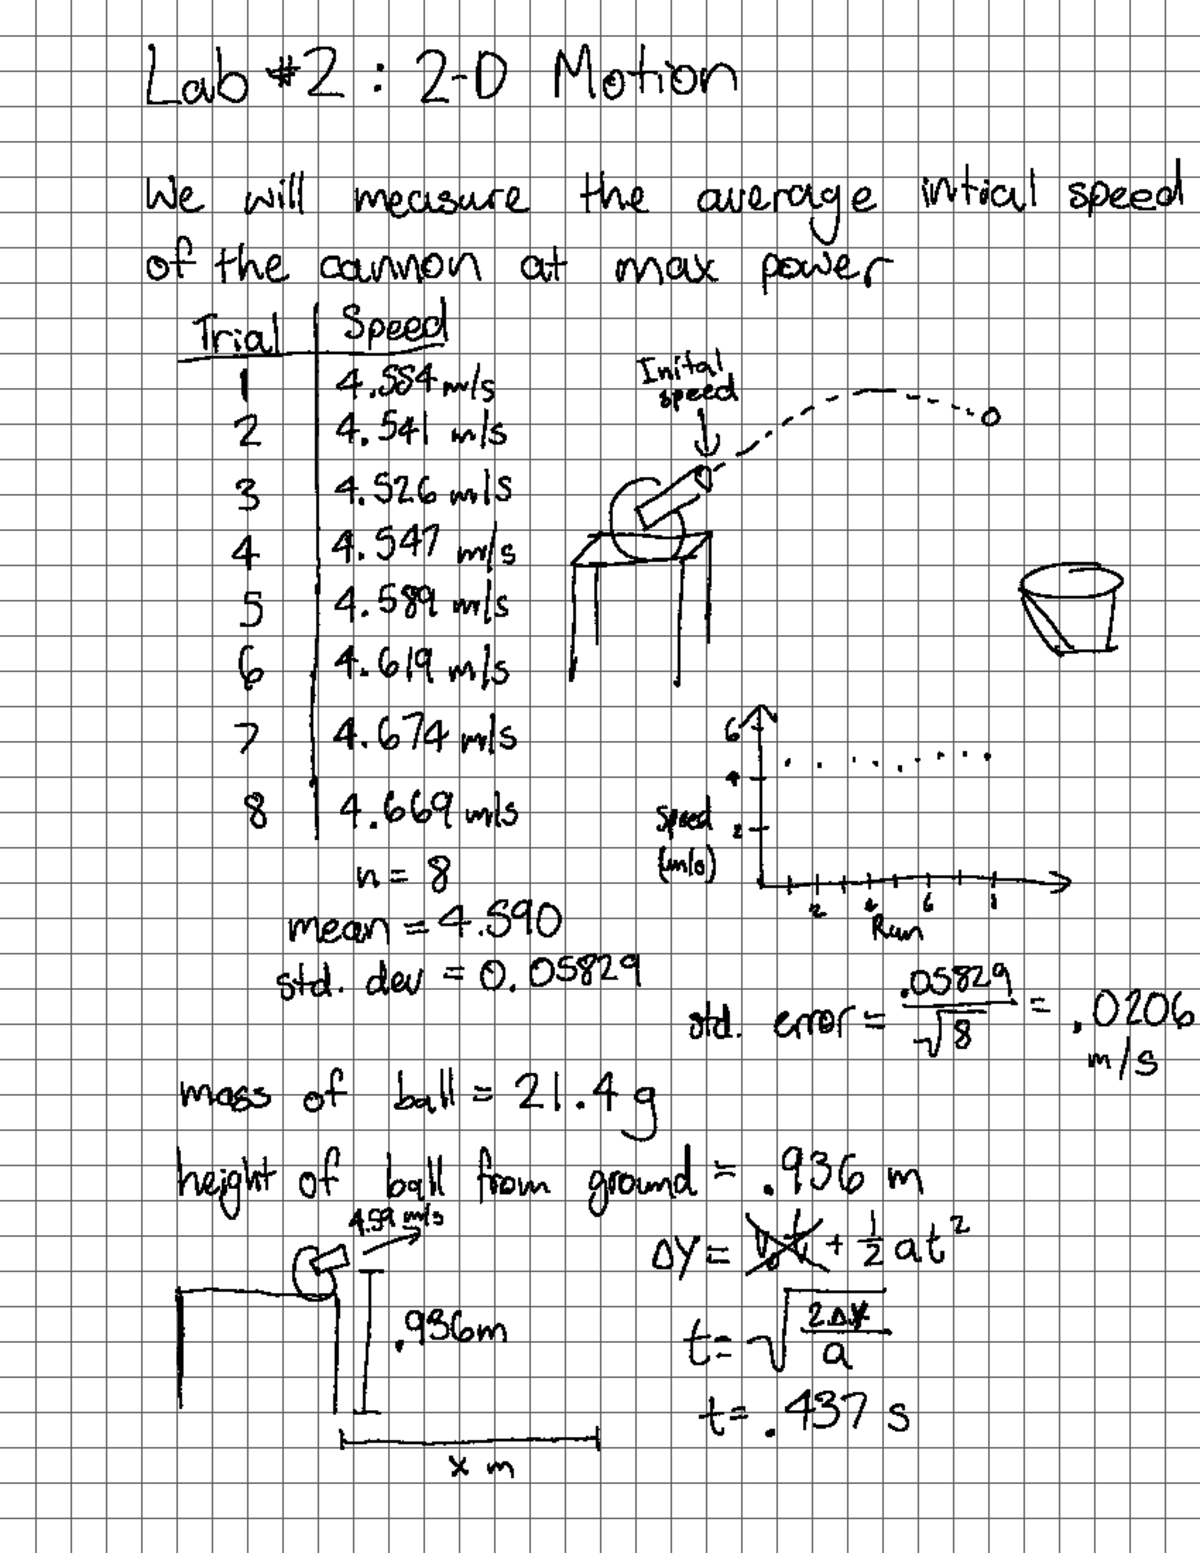 Lab #2 : 2-D Motion
We will measure the average intial speed
of the cannon at max power
Trial | Speed
1 4.554 m/s
2 4.541 m/s
3 4.526 m/s
4 4.547 m/s
5 4.589 m/s
6 4.619 m/s
7 4.674 m/s
8 4.669 m/s
n = 8
mean = 4.590
std. dev = 0.05829
Inital
speed
6
4
Speed 2
(m/s)
2 4 6
Run
std. error = .05829 / √8 = .0206
m/s
mass of ball = 21.4 g
height of ball from ground = .936 m
4.59 m/s
.936m
x m
ΔY = v₀t + ½ at²
t = √(2ΔY / a)
t = .437 s